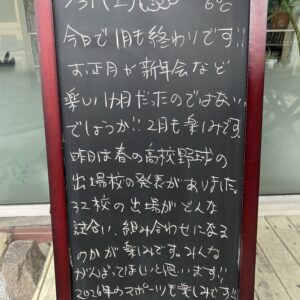 1/31(土) 6℃
今日で1月も終わりです!!
お正月が新年会など
楽しい1ヶ月だったのではない
でしょうか!! 2月も楽しみです
昨日は春の高校野球の
出場校の発表がありました。
32校の出場がどんな
試合い、組み合わせになる
のかが楽しみです。みんな
がんばってほしいと思います!!
2026年のスポーツも楽しみです!!